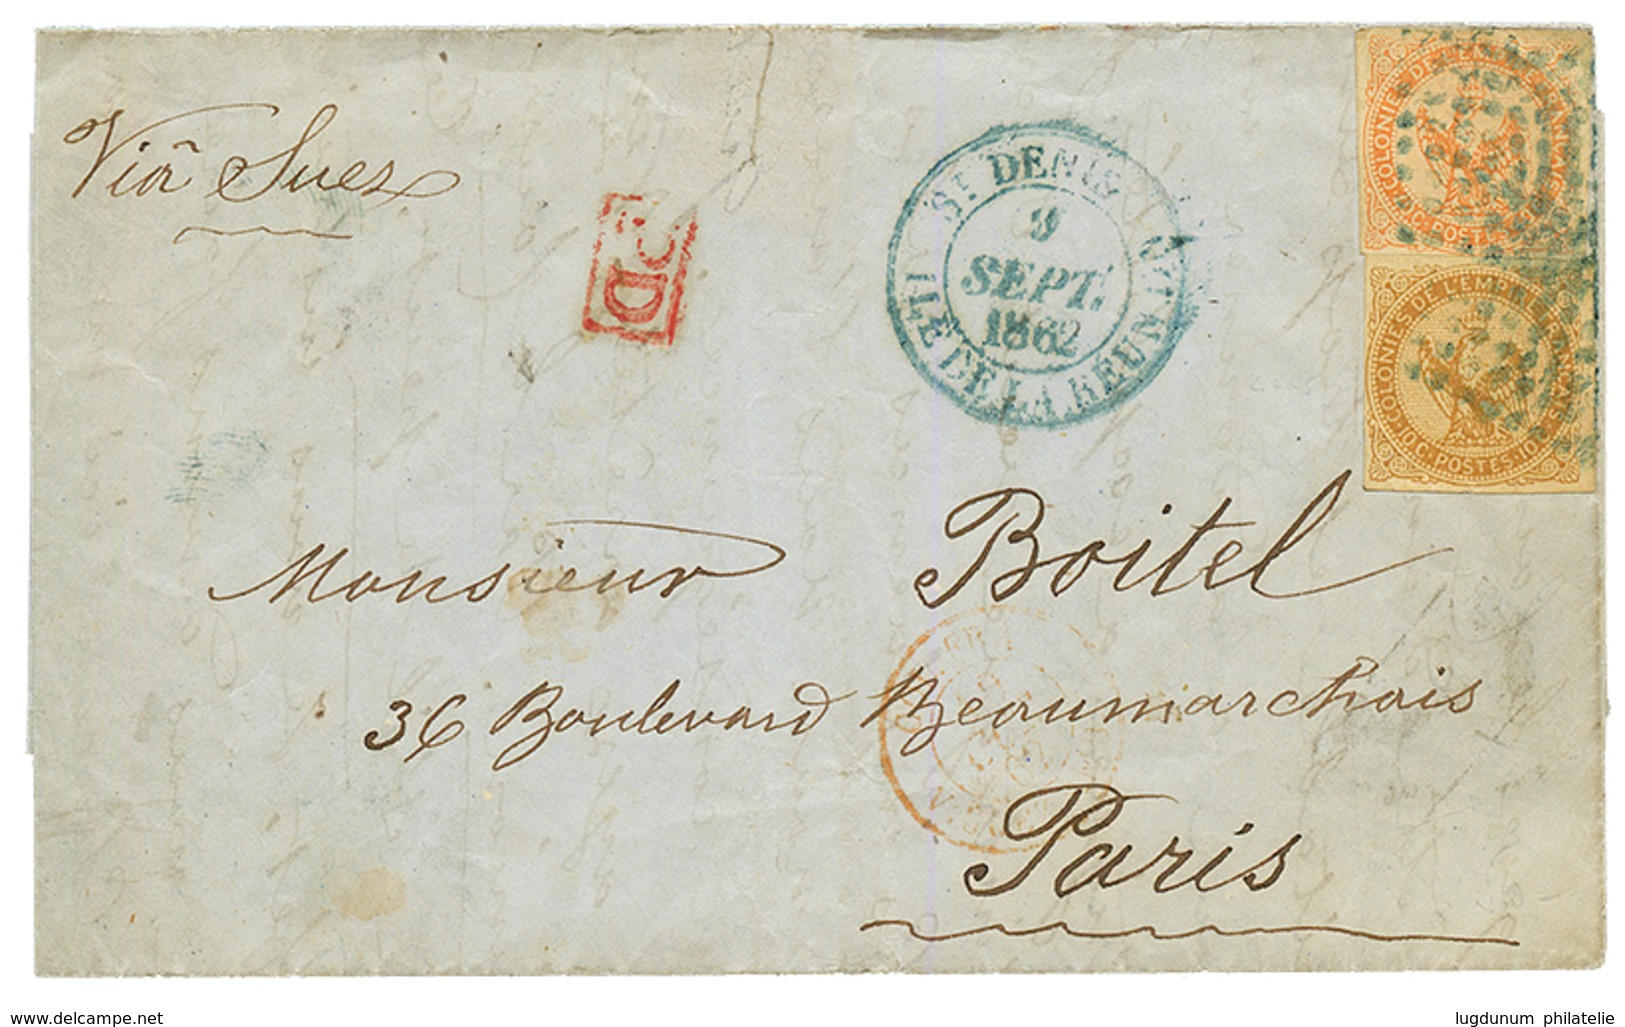 COLONIES DE L'EMPIRE FRANÇAIS
C. POSTES
Viâ Suez
ST DENIS
9
SEPT.
1862
ILE DE LA RÉUNION
COLONIES DE L'EMPIRE FRANÇAIS
10 C. POSTES 10
Monsieur Boitel
36 Boulevard Beaumarchais
Paris
delcampe.net
lugdunum philatelie